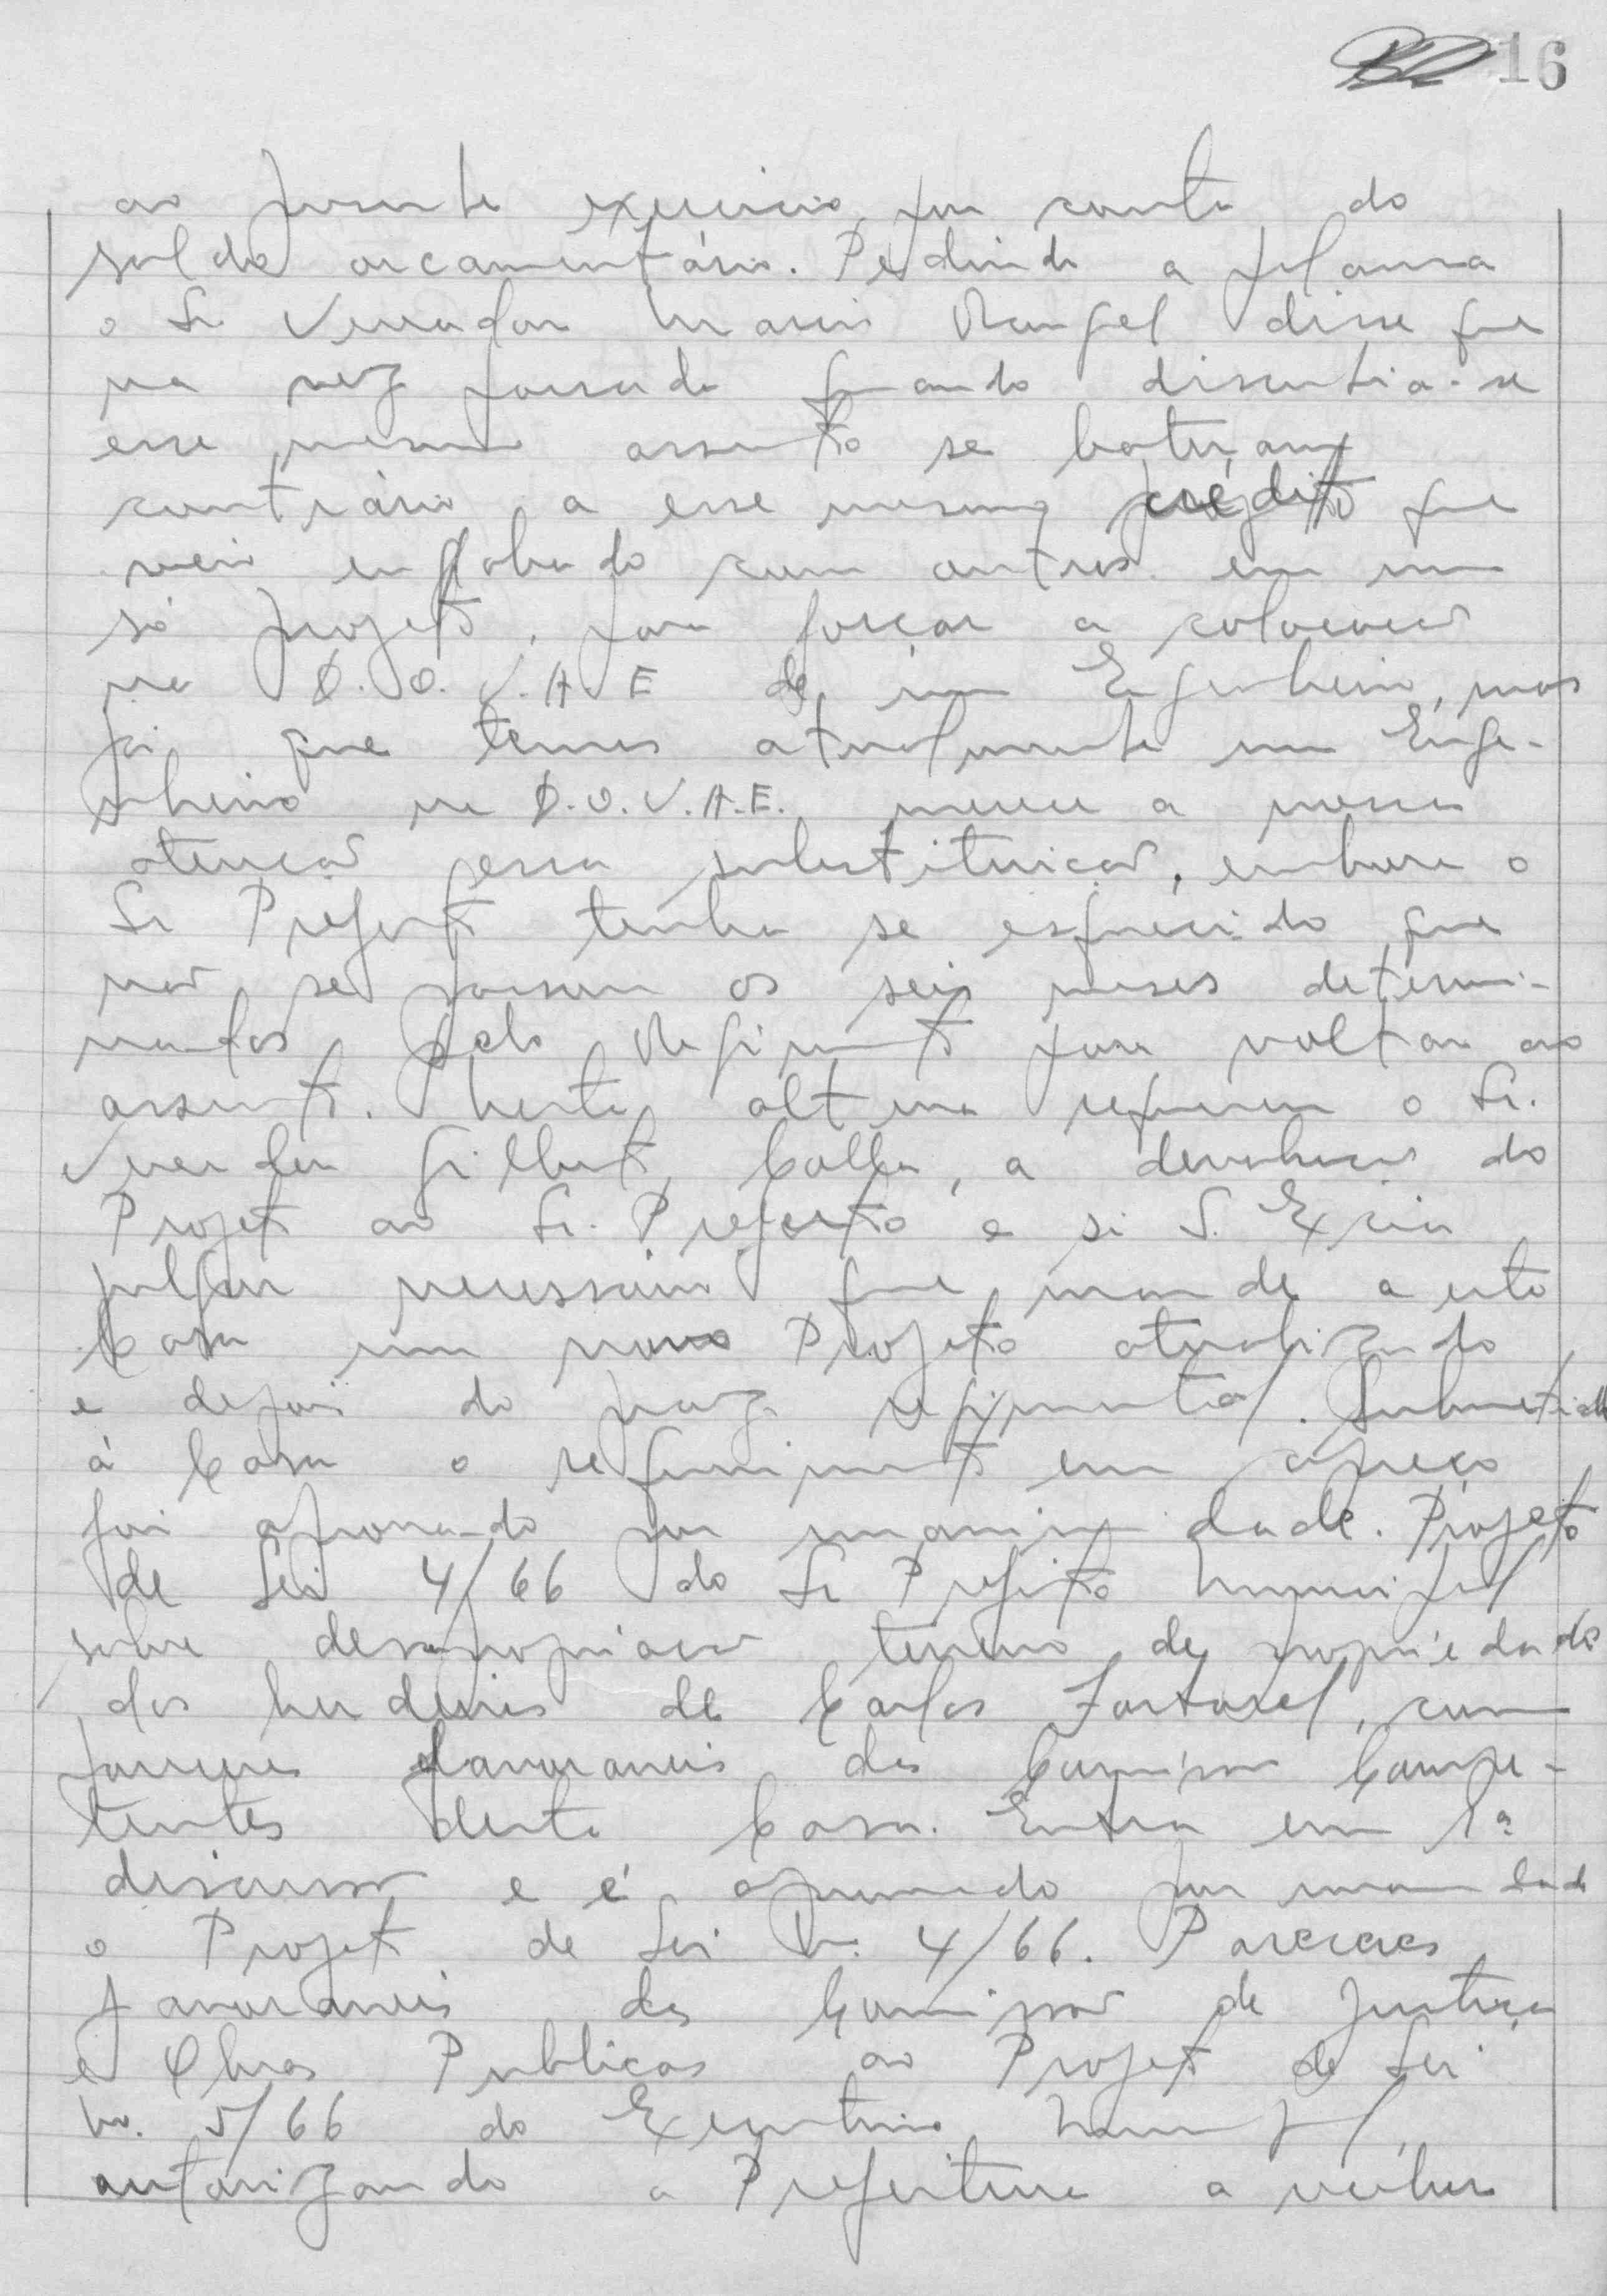 16
ao presente exercicio por conta do
saldo orcamentário. Pedindo a palavra
o Sr Vereador Mario Rangel disse que
na vez passada quando discutia-se
esse mesmo assunto se bateram
contrário a esse mesmo crédito que
veio englobado com outros em um
só projeto, para forçar a colocacao
na D.O.V.A.E de um Engenheiro, mas
já que temos atualmente um Enge-
nheiro na D.O.V.A.E. merece a nossa
atencao essa substituicao, embora o
Sr Prefeito tenha se esquecido que
nao se passam os seis meses determi-
nados pelo Regimento para voltar ao
assunto. Nesta altura requereu o Sr.
Vereador Gilberto, a devolucao do
Projeto ao Sr. Prefeito e si S. Excia
julgar necessário que mande a esta
Casa um novo Projeto atualizado
e depois do prazo regimental. Submetido
á Casa o requerimento em apreço
foi aprovado por unanimidade. Projeto
de Lei 4/66 do Sr Prefeito Municipal
sobre desapropriacao terreno de propriedade
dos herdeiros de Carlos, com
pareceres favoraveis das Comissoes Compe-
tentes desta Casa. Entra em 1ª
discussao e é aprovado por unanimidade
o Projeto de Lei No. 4/66. Pareceres
favoraveis das Comissoes de Justiça
e Obras Publicas ao Projeto de Lei
No. 5/66 do Executivo Municipal,
autorizando a Prefeitura a receber